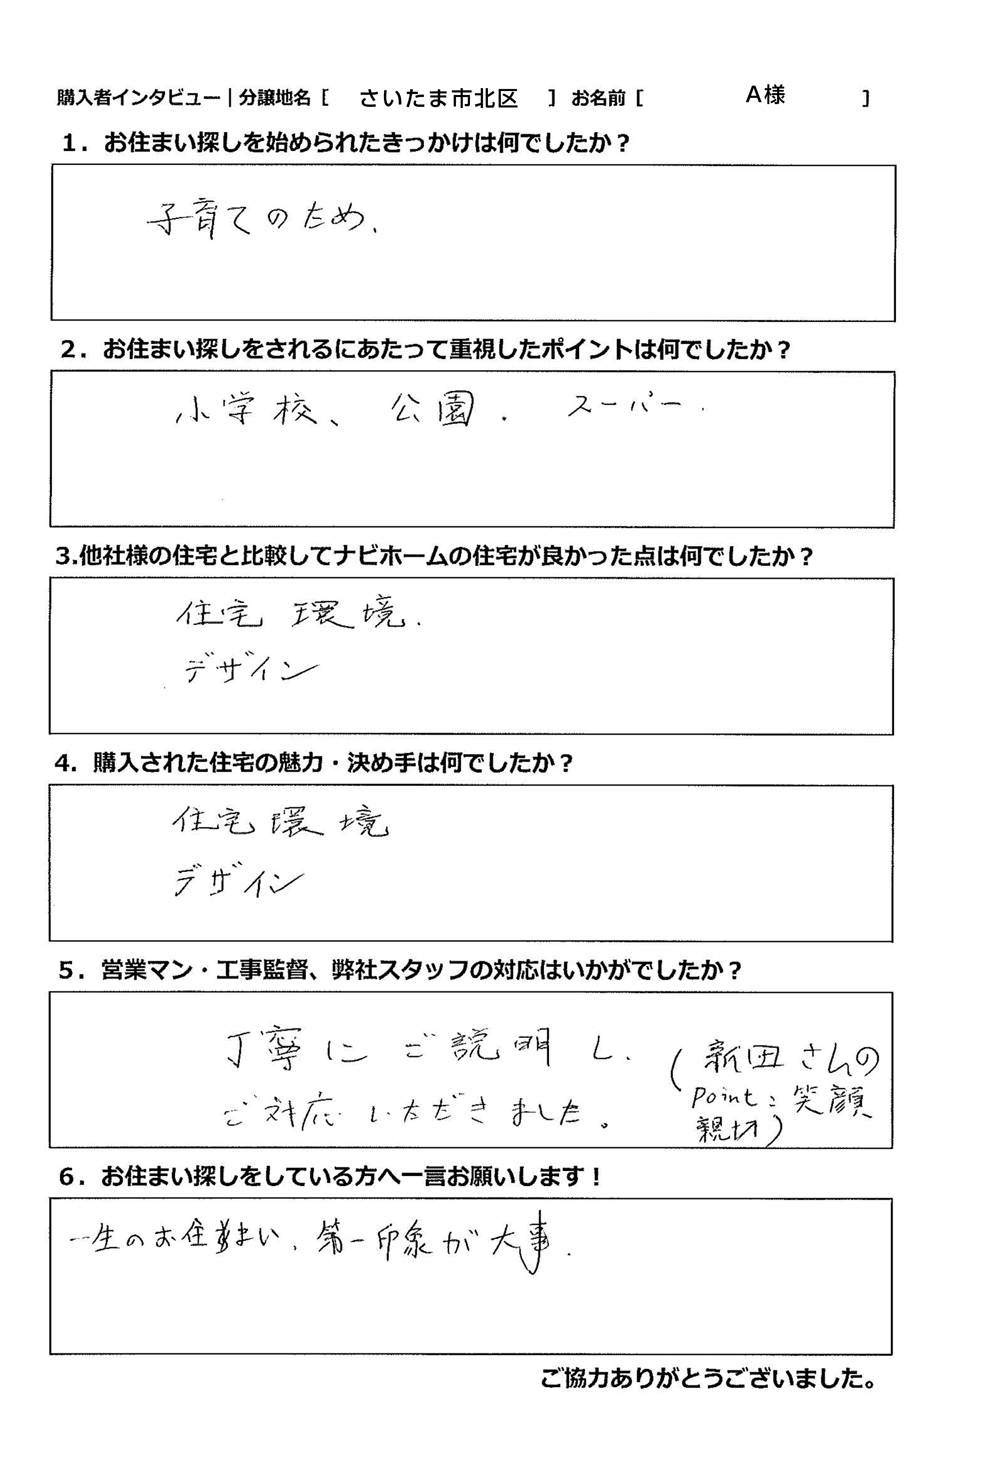 購入者インタビュー｜分譲地名［ さいたま市北区 ］お名前［ A様 ］
１．お住まい探しを始められたきっかけは何でしたか？
子育てのため.
２．お住まい探しをされるにあたって重視したポイントは何でしたか？
小学校、公園．スーパー．
3.他社様の住宅と比較してナビホームの住宅が良かった点は何でしたか？
住宅環境.
デザイン
4．購入された住宅の魅力・決め手は何でしたか？
住宅環境
デザイン
５．営業マン・工事監督、弊社スタッフの対応はいかがでしたか？
丁寧にご説明し、
ご対応いただきました。
(新田さんの
Point：笑顔
親切)
６．お住まい探しをしている方へ一言お願いします！
一生のお住まい、第一印象が大事.
ご協力ありがとうございました。